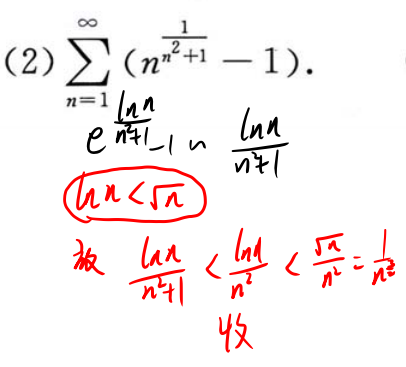 (2) ∑_{n=1}^{∞} (n^{\frac{1}{n^2+1}} − 1).
e^{\frac{ln n}{n^2+1}} −1 ~ \frac{ln n}{n^2+1}
ln n < √n
故 \frac{ln n}{n^2+1} < \frac{ln n}{n^2} < \frac{√n}{n^2} = \frac{1}{n^{\frac{3}{2}}}
收